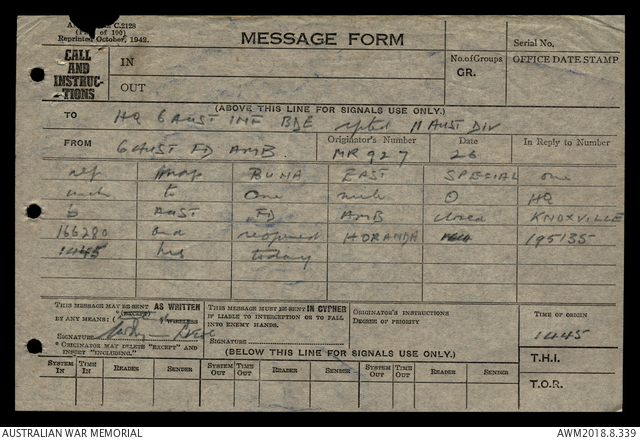 C.2128
of 100)
Reprinted October, 1942.
MESSAGE FORM
Serial No.
CALL AND INSTRUC-TIONS
IN
OUT
No. of Groups
GR.
OFFICE DATE STAMP
(ABOVE THIS LINE FOR SIGNALS USE ONLY.)
TO HQ 6 AUST INF BDE rptd 11 AUST DIV
FROM 6 AUST FD AMB.
Originator's Number MR 927
Date 26
In Reply to Number
ref map BUNA EAST SPECIAL one
inch to one mile O HQ
6 AUST FD AMB closed KNOXVILLE
166280 and reopened HORANDA 195135
1445 hrs today
THIS MESSAGE MAY BE SENT AS WRITTEN
BY ANY MEANS. * (EXCEPT) WIRELESS
SIGNATURE
* ORIGINATOR MAY DELETE "EXCEPT" AND INSERT "INCLUDING."
THIS MESSAGE MUST BE SENT IN CYPHER
IF LIABLE TO INTERCEPTION OR TO FALL
INTO ENEMY HANDS.
SIGNATURE
ORIGINATOR'S INSTRUCTIONS
DEGREE OF PRIORITY
TIME OF ORIGIN
1445
T.H.I.
T.O.R.
(BELOW THIS LINE FOR SIGNALS USE ONLY.)
SYSTEM IN TIME IN READER SENDER SYSTEM OUT TIME OUT READER SENDER SYSTEM OUT TIME OUT READER SENDER
AUSTRALIAN WAR MEMORIAL
AWM2018.8.339